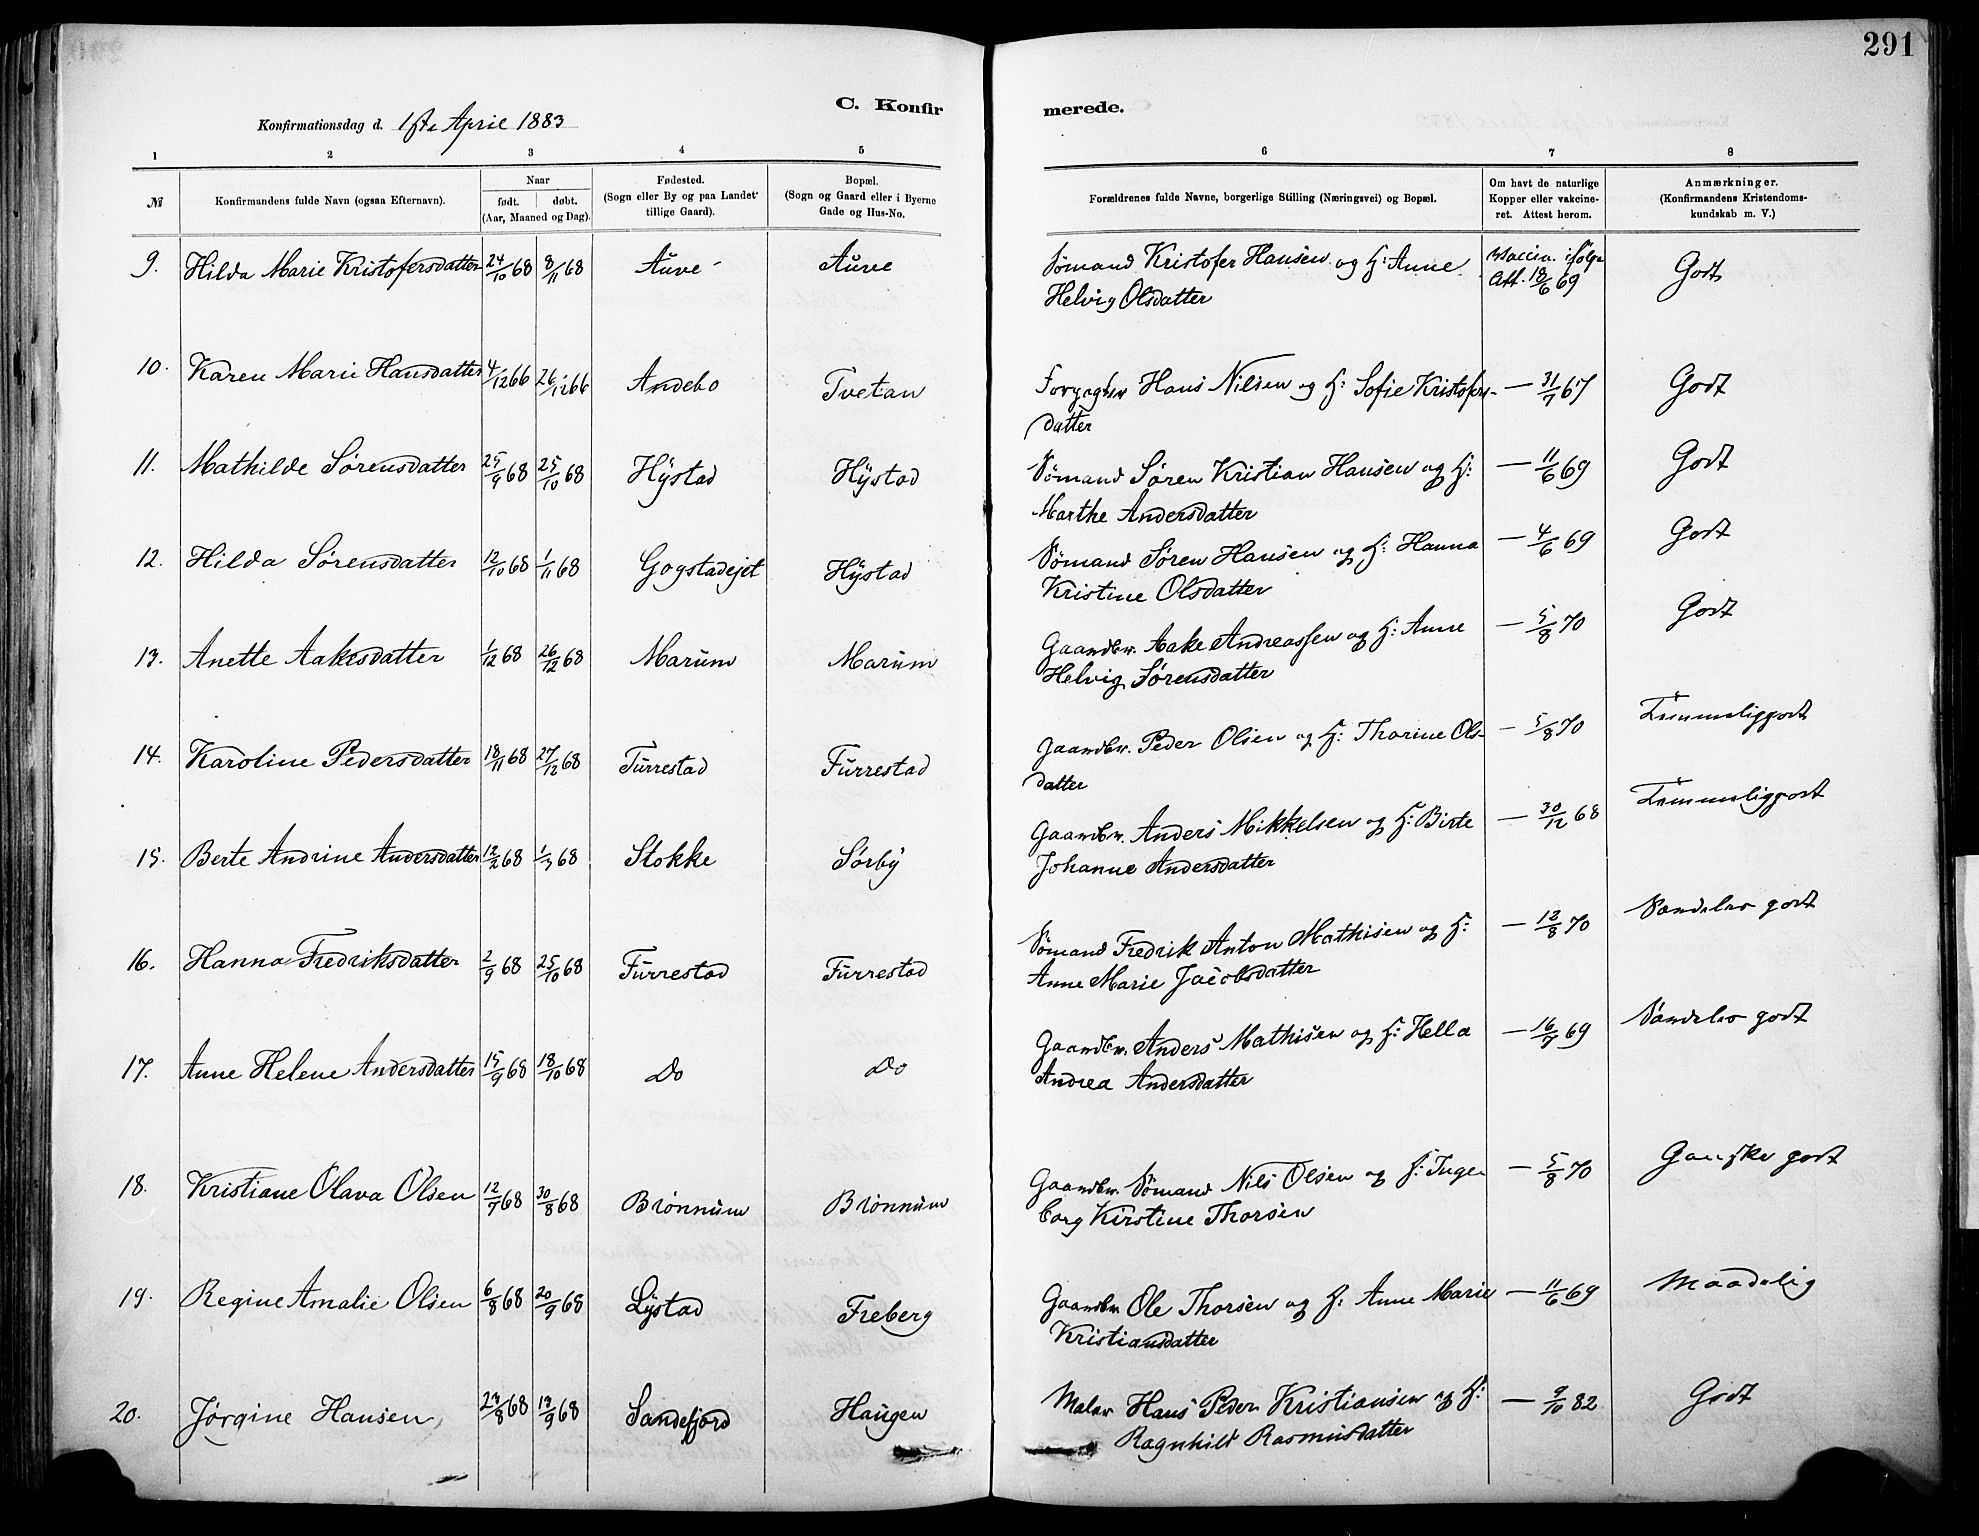 291
C. Konfir merede.
Konfirmationsdag d. 1ste April 1883
1 2 3 4 5 6 7 8
№ Konfirmandens fulde Navn (ogsaa Efternavn). Naar født. døbt. (Aar, Maaned og Dag). Fødested. (Sogn eller By og paa Landet tillige Gaard). Bopæl. (Sogn og Gaard eller i Byerne Gade og Hus-No. Forældrenes fulde Navne, borgerlige Stilling (Næringsvei) og Bopæl. Om havt de naturlige Kopper eller vakcineret. Attest herom. Anmærkninger. (Konfirmandens Kristendomskundskab m. V.)
9. Hilda Marie Kristofersdatter 24/10 68 8/11 68 Auve Auve Sømand Kristofer Hansen og H: Anne Vaccin. ifølge Godt
Helvig Olsdatter Att. 18/6 69
10. Karen Marie Hansdatter 4/12 66 26/12 66 Andebo Tvetan Forpagter Hans Nilsen og H: Sofie Kristofers- — 31/7 67 Godt
datter
11. Mathilde Sørensdatter 25/9 68 25/10 68 Hystad Hystad Sømand Søren Kristian Hansen og H: — 11/6 69 Godt
Marthe Andersdatter
12. Hilda Sørensdatter 12/10 68 1/11 68 Gogstadejet Hystad Sømand Søren Hansen og H: Hanna — 4/6 69 Godt
Kristine Olsdatter
13. Anette Aakesdatter 1/12 68 26/12 68 Marum Marum Gaardbr. Aake Andreassen og H: Anne — 5/8 70 Godt
Helvig Sørensdatter
14. Karoline Pedersdatter 18/11 68 27/12 68 Furrestad Furrestad Gaardbr. Peder Olsen og H: Thorine Ols- — 5/8 70 Temmeliggodt
datter
15. Berte Andrine Andersdatter 12/2 68 1/3 68 Stokke Sørby Gaardbr. Anders Mikkelsen og H: Birte — 30/12 68 Temmeliggodt
Johanne Andersdatter
16. Hanna Fredriksdatter 2/9 68 25/10 68 Furrestad Furrestad Sømand Fredrik Anton Mathisen og H: — 12/8 70 Særdeles godt
Anne Marie Jacobsdatter
17. Anne Helene Andersdatter 15/9 68 18/10 68 Do Do Gaardbr. Anders Mathisen og H: Hella — 16/7 69 Særdeles godt
Andrea Andersdatter
18. Kristiane Olava Olsen 12/7 68 30/8 68 Brønnum Brønnum Gaardbr. Sømand Nils Olsen og H: Inge — 5/8 70 Ganske godt
borg Kirstine Thorsen
19. Regine Amalie Olsen 6/8 68 20/9 68 Lystad Freberg Gaardbr Ole Thorsen og H: Anne Marie — 11/6 69 Maadelig
Kristiansdatter
20. Jørgine Hansen 23/8 68 18/9 68 Sandefjord Haugen Maler Hans Peder Kristiansen og H: — 9/10 82 Godt
Ragnhild Rasmusdatter